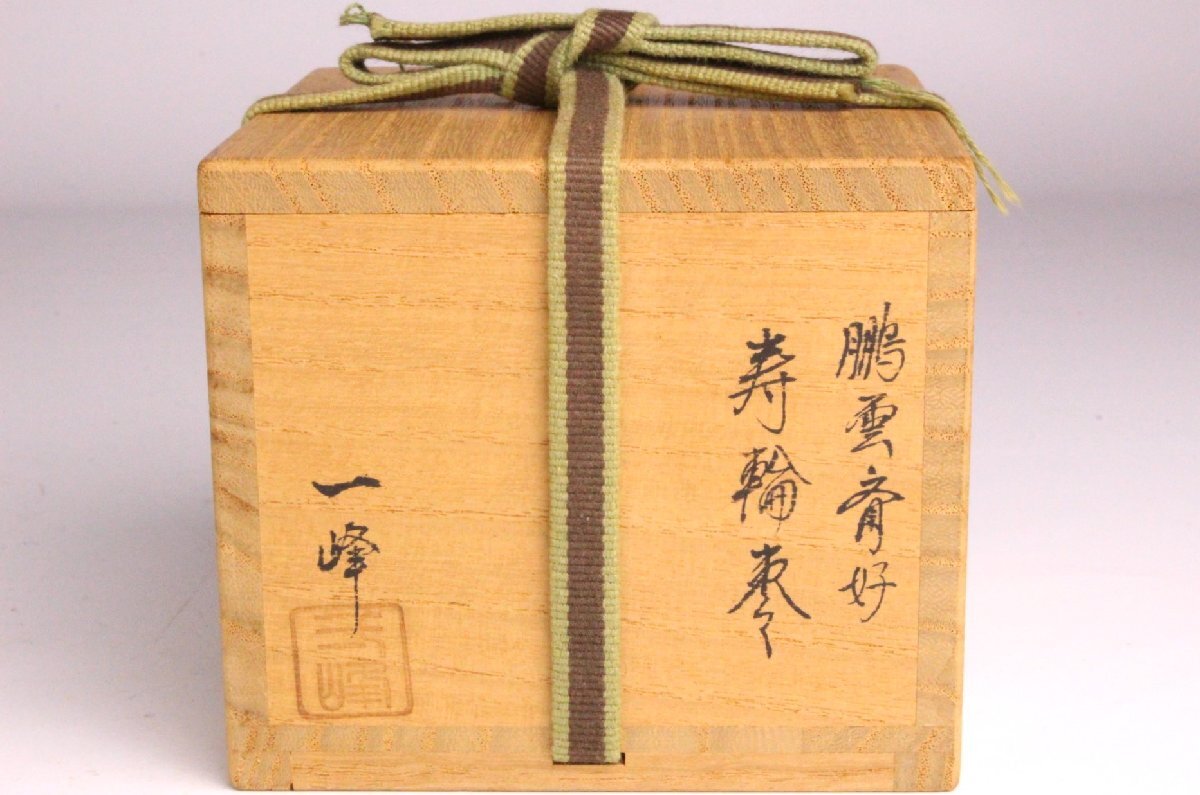 鵬雲斎好
寿輪棗
一峰
一峰